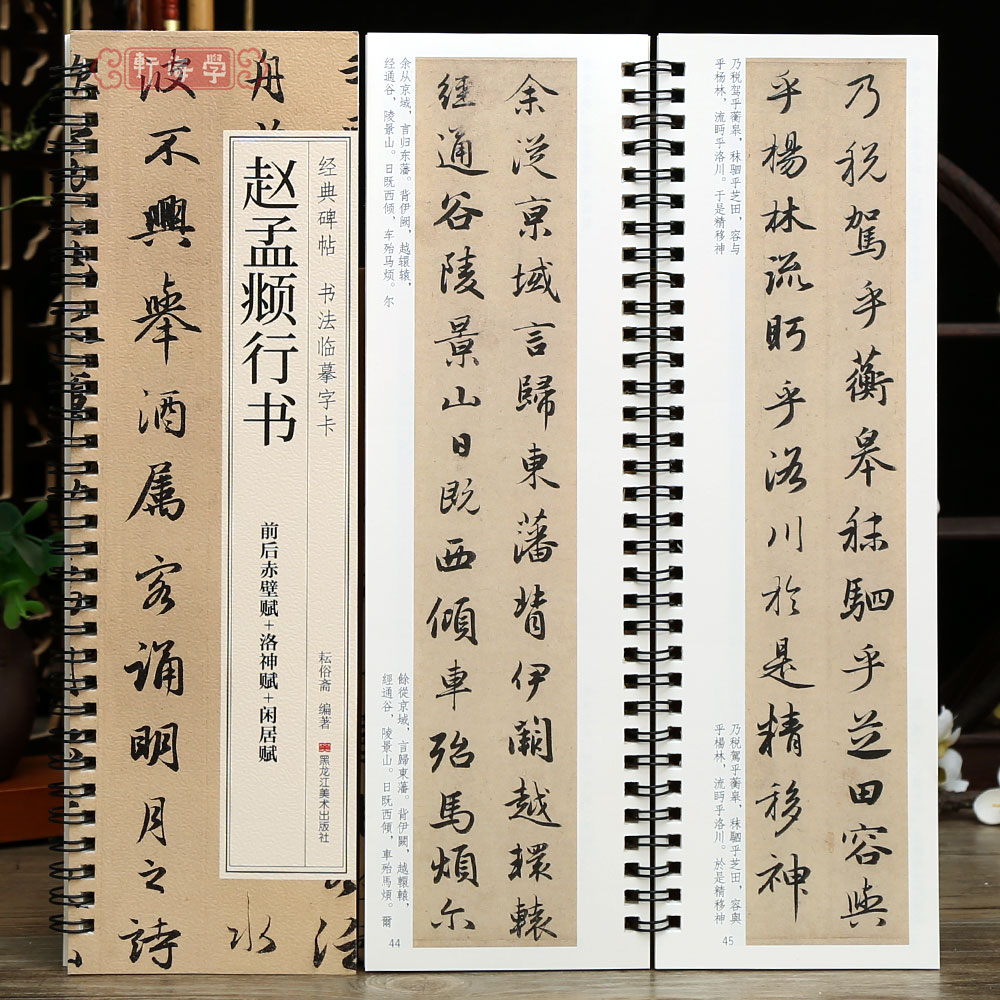 经典碑帖 书法临摹字卡
赵孟𫖯行书
前后赤壁赋+洛神赋+闲居赋
耘俗斋 编著 黑龙江美术出版社
舟
波不興舉酒属客誦明月之詩
水
余从京域，言归东藩。背伊阙，越轘辕，
经通谷，陵景山。日既西倾，车殆马烦。尔
余從京域言歸東藩背伊闕越轘轅
經通谷陵景山日既西傾車殆馬煩尓
餘從京域，言歸東藩。背伊闕，越轘轅，
經通谷，陵景山。日既西傾，車殆馬煩。爾
44
乃税驾乎蘅皋，秣驷乎芝田，容与
乎杨林，流眄乎洛川。于是精移神
乃税駕乎蘅皋秣駟乎芝田容與
乎楊林流眄乎洛川於是精移神
乃税駕乎蘅皋，秣駟乎芝田，容輿
乎楊林，流眄乎洛川。於是精移神
45